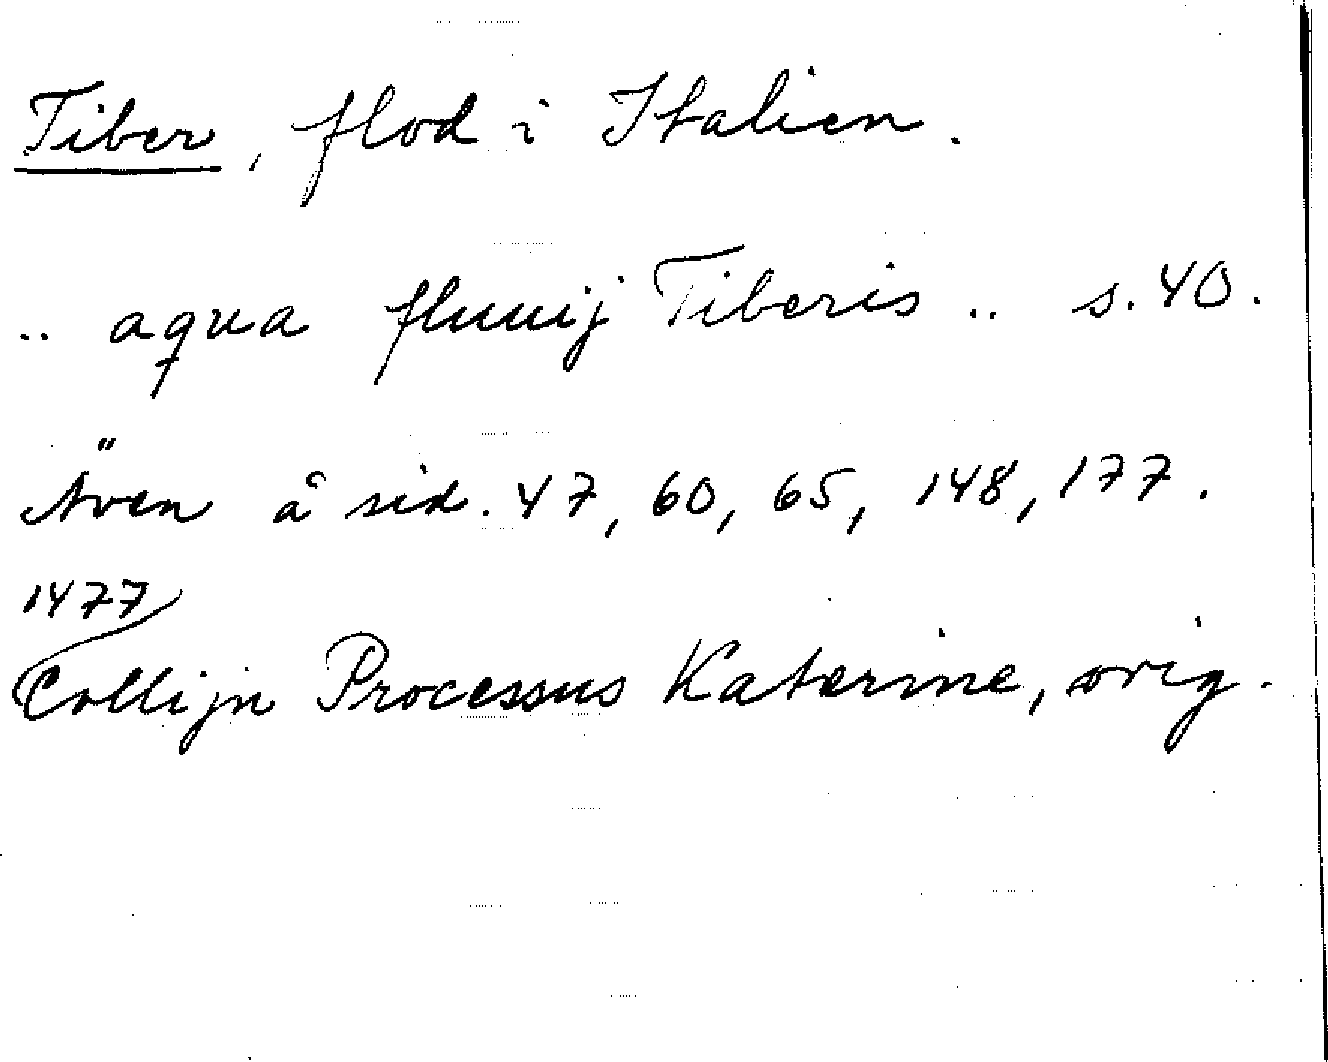 Tiber, flod i Italien.
.. aqua fluuij Tiberis .. s. 40.
Även å sid. 47, 60, 65, 148, 177.
1477
Collijn Processus Katerine, orig.